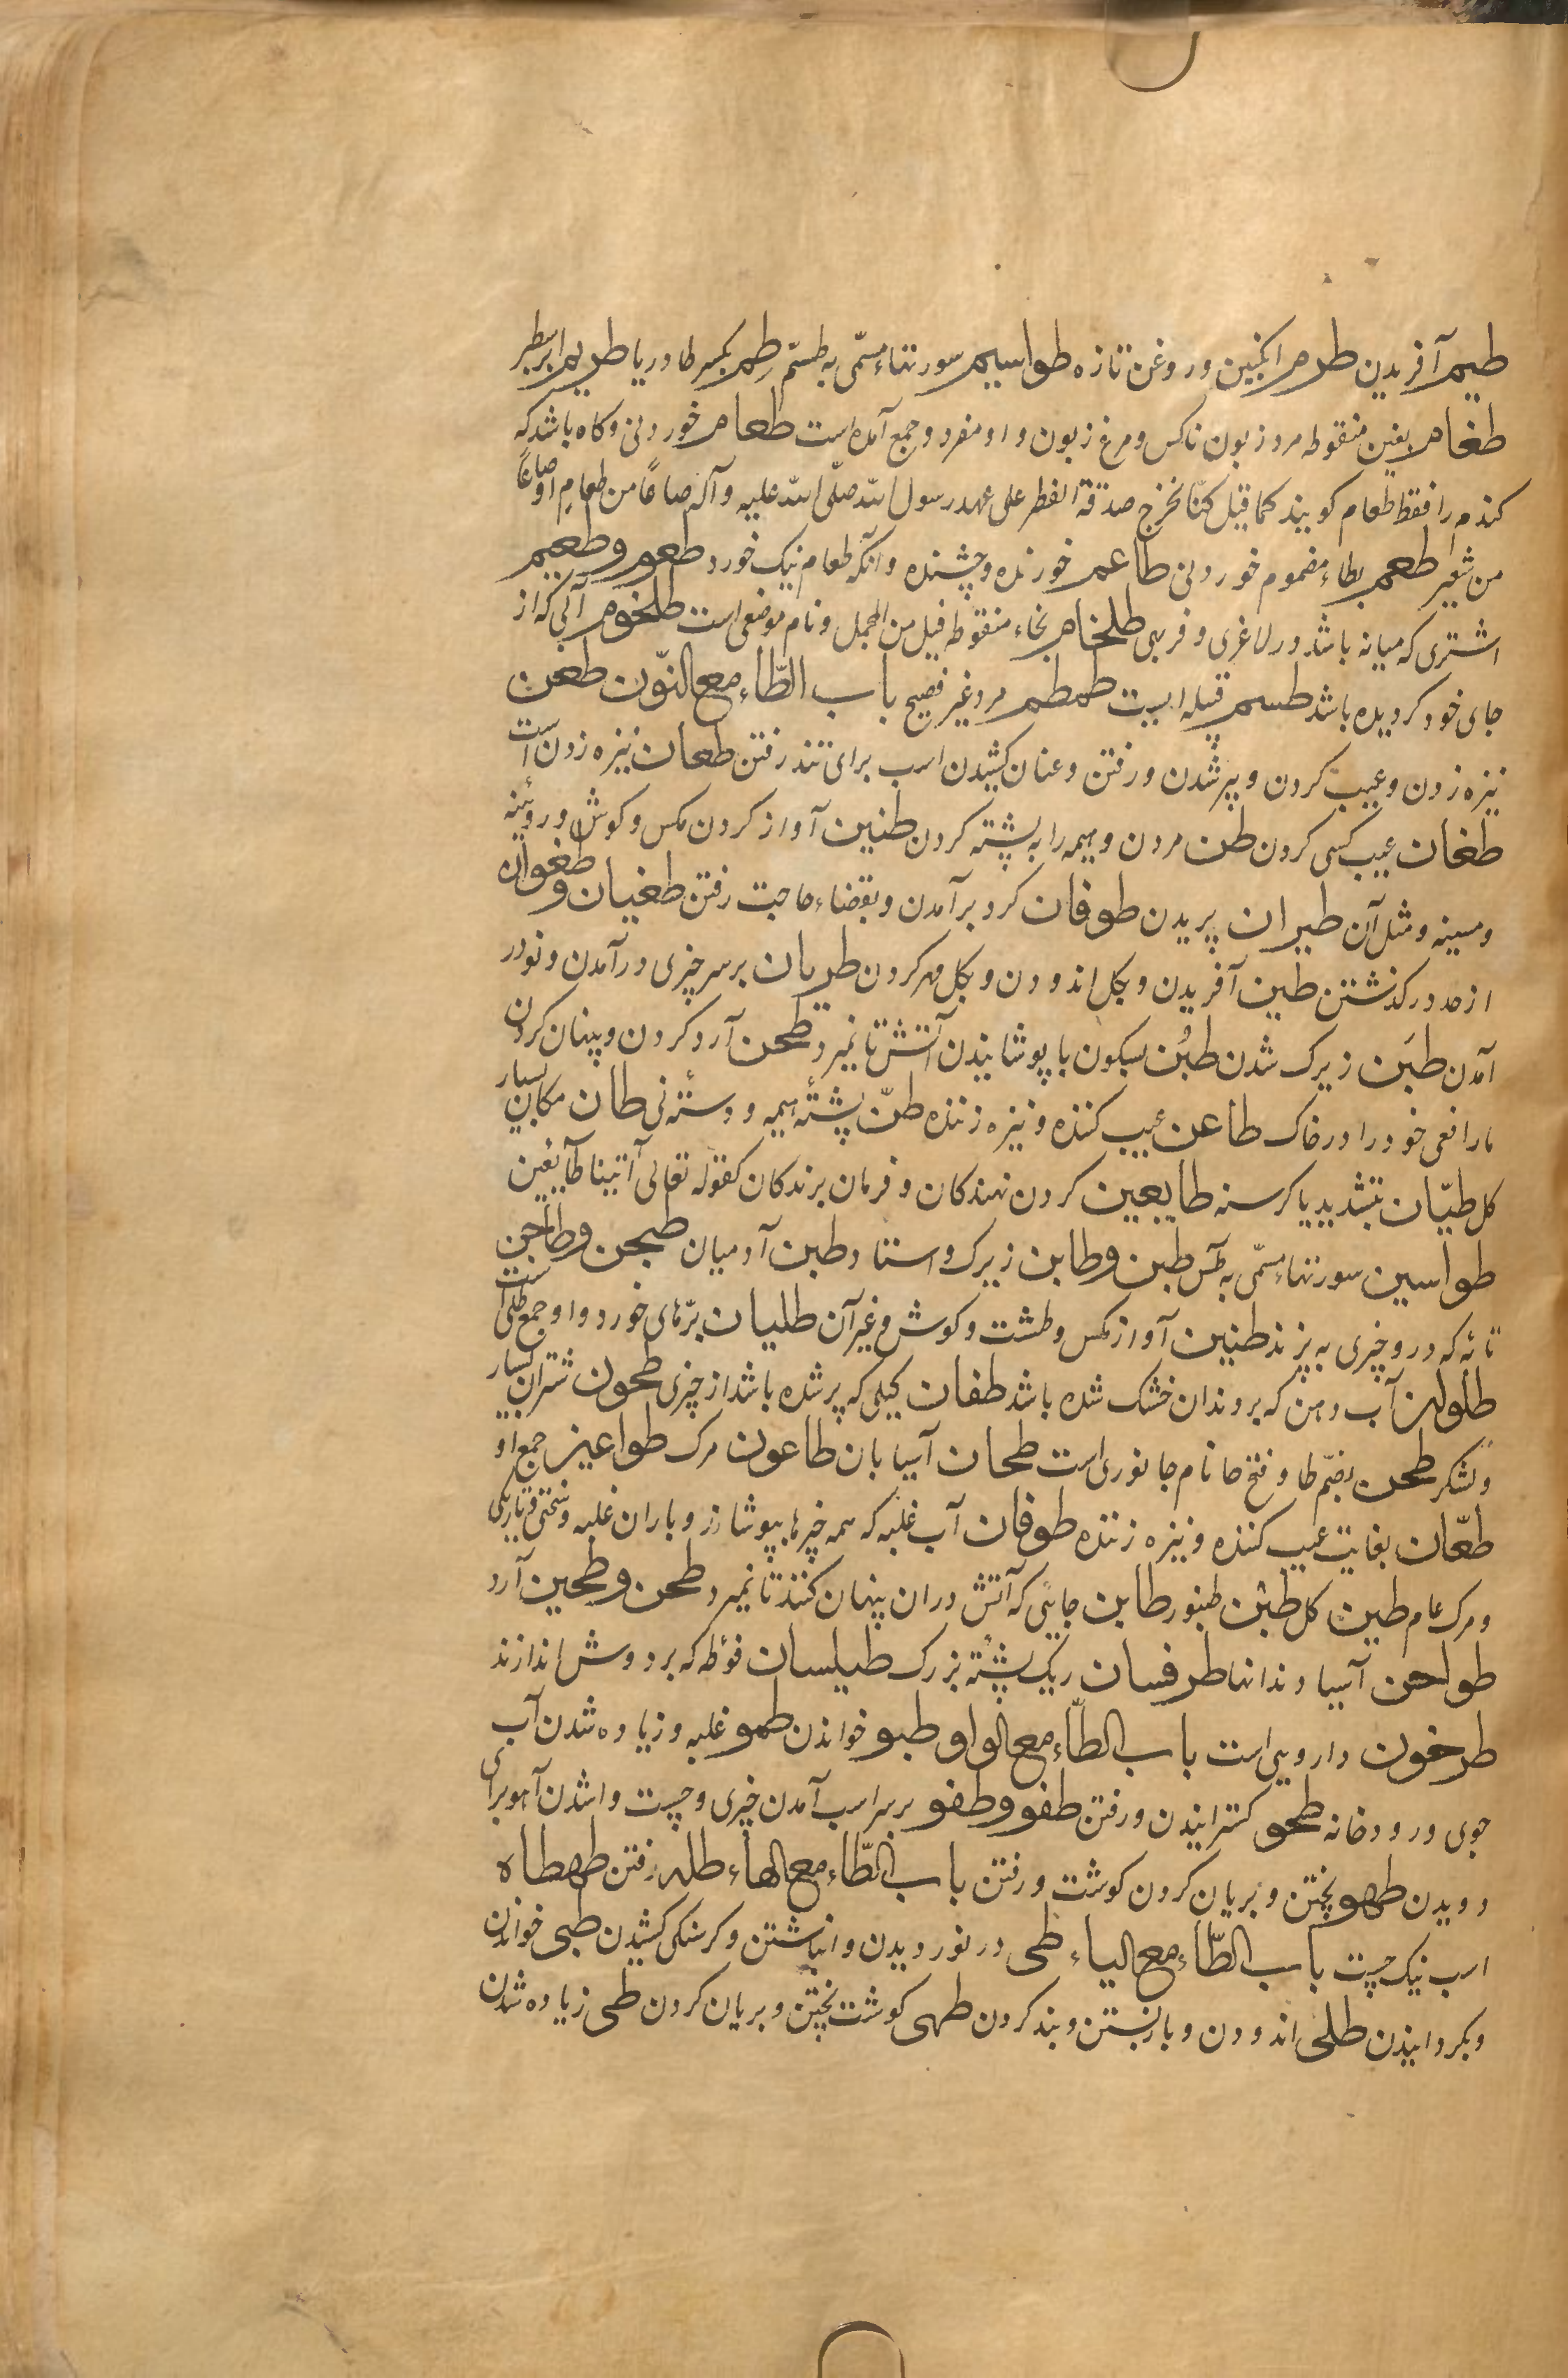 طیم آفریدن طرم انکبین و روغن تازه طواسیم سورتهاء مسمّی به طسمّ طِم بکسر طا دریا طریم ابر سطبر
طغام بغین منقوطه مرد زبون ناکس و مرغ زبون و او مفرد و جمع آمده است طعام خوردنی و کاه باشد که
کندم را فقط طعام کویند کما قیل کنّا نخرج صدقة الفطر علی عهد رسول الله صلّی الله علیه و آله صاعًا من طعامٍ او صاعًا
من شعیر طعم بطاء مضموم خوردنی طاعم خورنده و چشنده و آنکه طعام نیک خورد طعوم و طعیم
اشتری که میانه باشد در لاغری و فربهی طلخام بخاء منقوطه فیل من المجمل و نام موضعی است طلخوم آبی که از
جای خود کردیده باشد طسم قبیله ایست طمطم مرد غیر فصیح باب الطّاء مع النّون طعن
نیزه زدن و عیب کردن و پیر شدن و رفتن و عنان کشیدن اسب برای تند رفتن طعان نیزه زدن است
طغان عیب کسی کردن طن مردن و هیمه را به پشته کردن طنین آواز کردن مکس و کوش و روئینه
و مسینه و مثل آن طیران پریدن طوفان کرد برآمدن و بقضاء حاجت رفتن طغیان و طغوان
از حد درکذشتن طین آفریدن و بکل اندودن و بکل مهر کردن طریان بر سر چیزی درآمدن و نو در
آمدن طبَن زیرک شدن طبُن بسکون با پوشانیدن آتش تا نمیرد طحن آرد کردن و پنهان کردن
مار افعی خود را در خاک طاعن عیب کننده و نیزه زننده طنّ پشتهٔ هیمه و دستهٔ نی طان مکان بسیار
کل طیّان بتشدید یا کرسنه طایعین کردن نهندکان و فرمان برندکان کقوله تعالی آتینا طآیعین
طواسین سورتهاء مسمّی به طس طبن و طابن زیرک و استاد طبن آدمیان طیجن و طاجن
تابه که درو چیزی به پزند طنین آواز مکس و طشت و کوش و غیر آن طلیان برّهای خورد و او جمع طلی است
طلوان آب دهن که بر دندان خشک شده باشد طفان کیلی که پر شده باشد از چیزی طحون شتران بسیار
و لشکر طحن بضمّ طا و فتح حا نام جانوری است طحان آسیابان طاعون مرک طواعین جمع او
طعّان بغایت عیب کننده و نیزه زننده طوفان آب غلبه که همه چیزها بپوشاند و باران غلبه و سختی و تاریکی
و مرک عام طین کل طبن طنبور طابن جایی که آتش در ان پنهان کنند تا نمیرد طحن و طحین آرد
طواحن آسیا دندانها طرفسان ریک پشتهٔ بزرک طیلسان فوطه که بر دوش اندازند
طرخون دارویی است باب الطّاء مع الواو طبو خواندن طمو غلبه و زیاده شدن آب
جوی و رودخانه طحو کسترانیدن و رفتن طفو و طفو بر سر اب آمدن چیزی و چست واشدن آهو برای
دویدن طهو پختن و بریان کردن کوشت و رفتن باب الطّاء مع الهاء طله رفتن طهطاه
اسب نیک چست باب الطّاء مع الیاء طی در نوردیدن و انباشتن و کرسنکی کشیدن طبی خواندن
و بکردانیدن طلی اندودن و باز بستن و بند کردن طهی کوشت پختن و بریان کردن طمی زیاده شدن